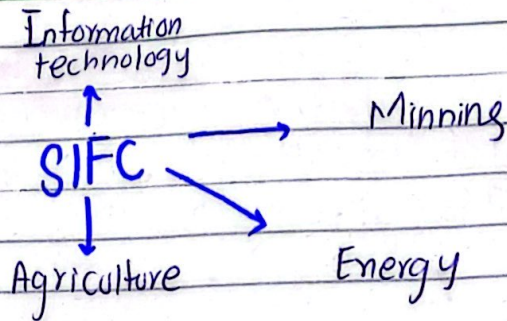 Information
technology
Minning
SIFC
Agriculture
Energy